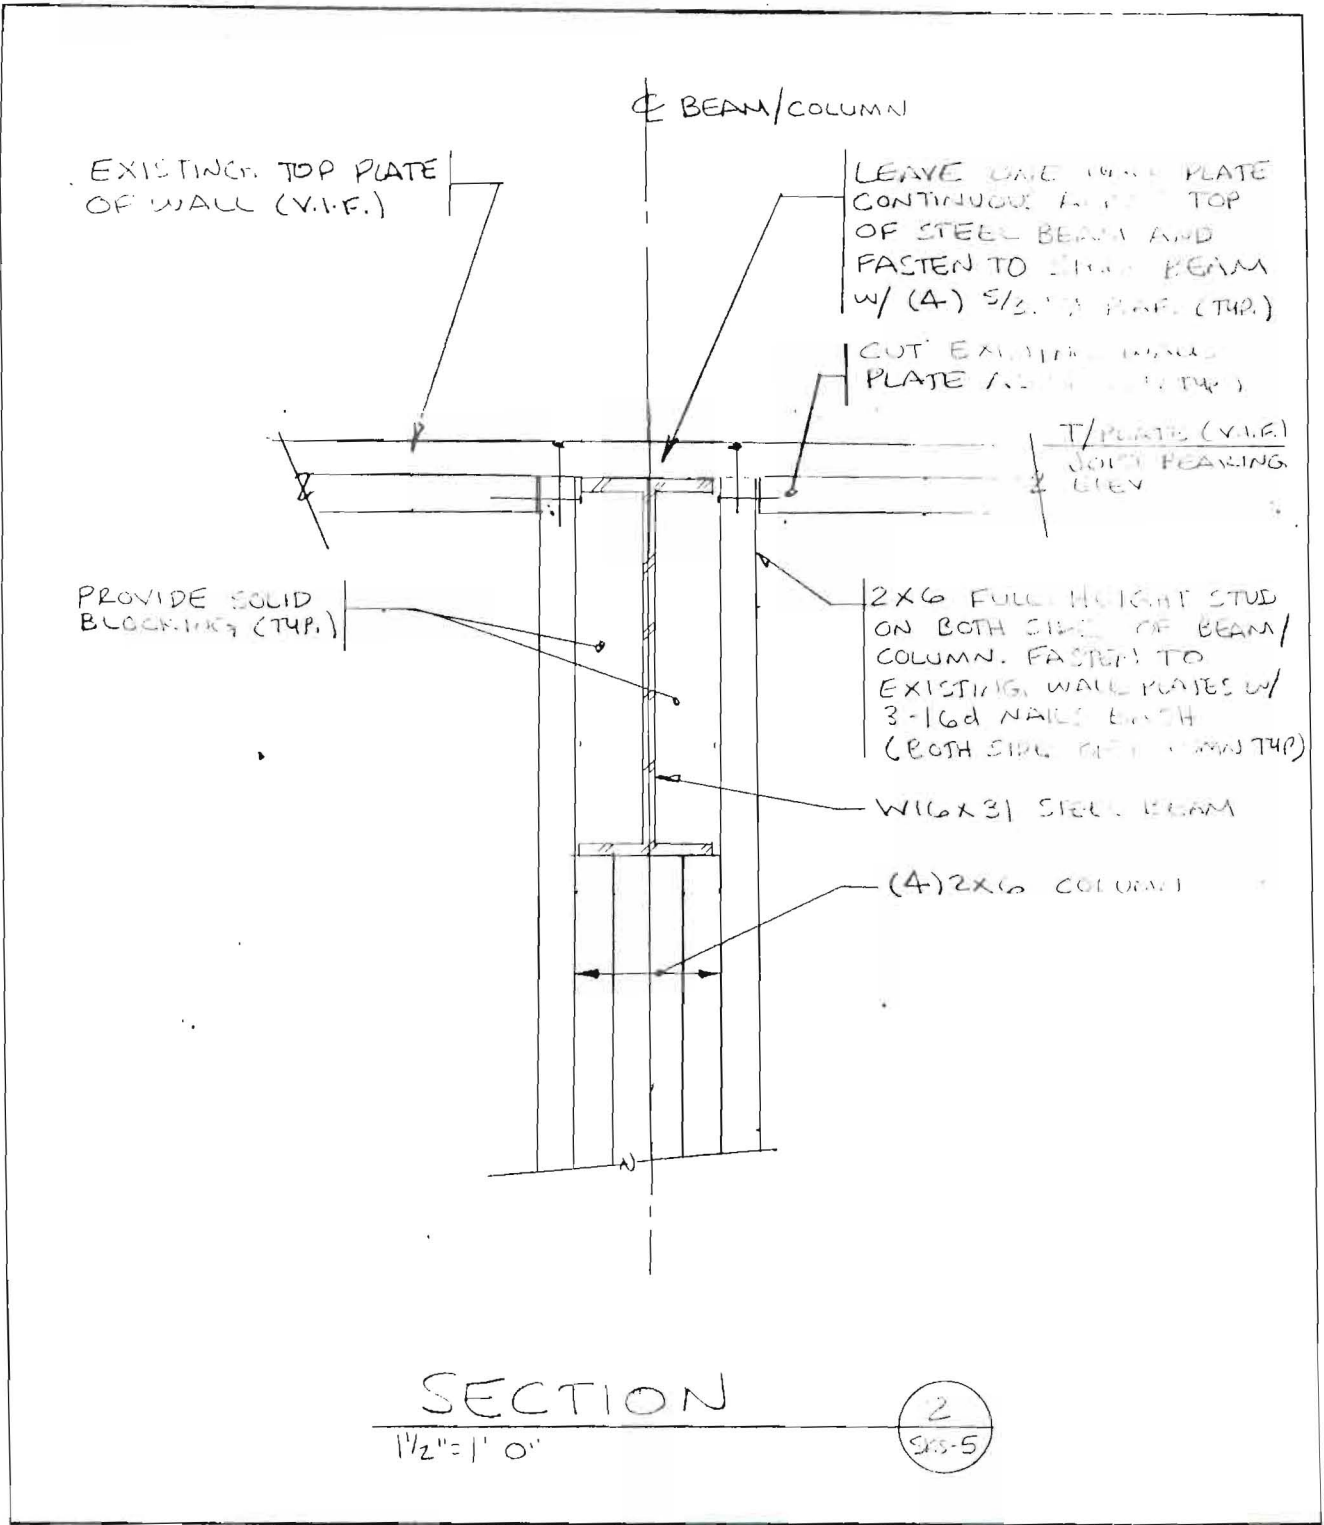 ℄ BEAM/COLUMN
EXISTING TOP PLATE
OF WALL (V.I.F.)
LEAVE ONE PLATE
CONTINUOUS TOP
OF STEEL BEAM AND
FASTEN TO BEAM
W/ (4) (TYP.)
CUT EXISTING
PLATE (TYP.)
T/PLATE (V.I.F.)
JOIST BEARING
ELEV
PROVIDE SOLID
BLOCKING (TYP.)
2X6 FULL HEIGHT STUD
ON BOTH SIDE OF BEAM/
COLUMN. FASTEN TO
EXISTING WALL PLATES W/
3-16d NAILS EACH
(BOTH SIDE TYP)
W16X31 STEEL BEAM
(4)2X6 COLUMN
SECTION
1 1/2"=1' 0"
2
SKS-5